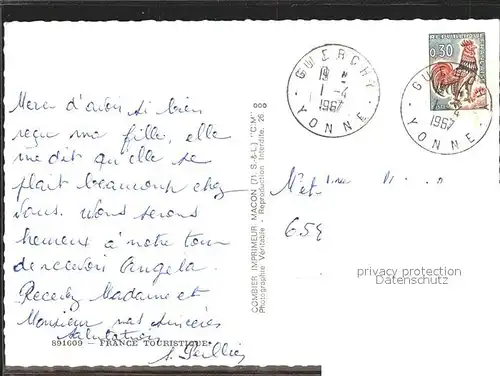 Merci d'avoir si bien
reçu ma fille, elle
me dit qu'elle se
plait beaucoup chez
vous. Nous serons
heureux à notre tour
de recevoir Angela.
Recevez Madame et
Monsieur nos sincères
salutations
891609 - FRANCE TOURISTIQUE
COMBIER IMPRIMEUR MACON (71, S.-&-L.) "CIM"
Photographie Véritable - Reproduction Interdite. 26
GUERCHY
1 -4
1967
YONNE
REPUBLIQUE
0,30
1967
YONNE
659
privacy protection
Datenschutz